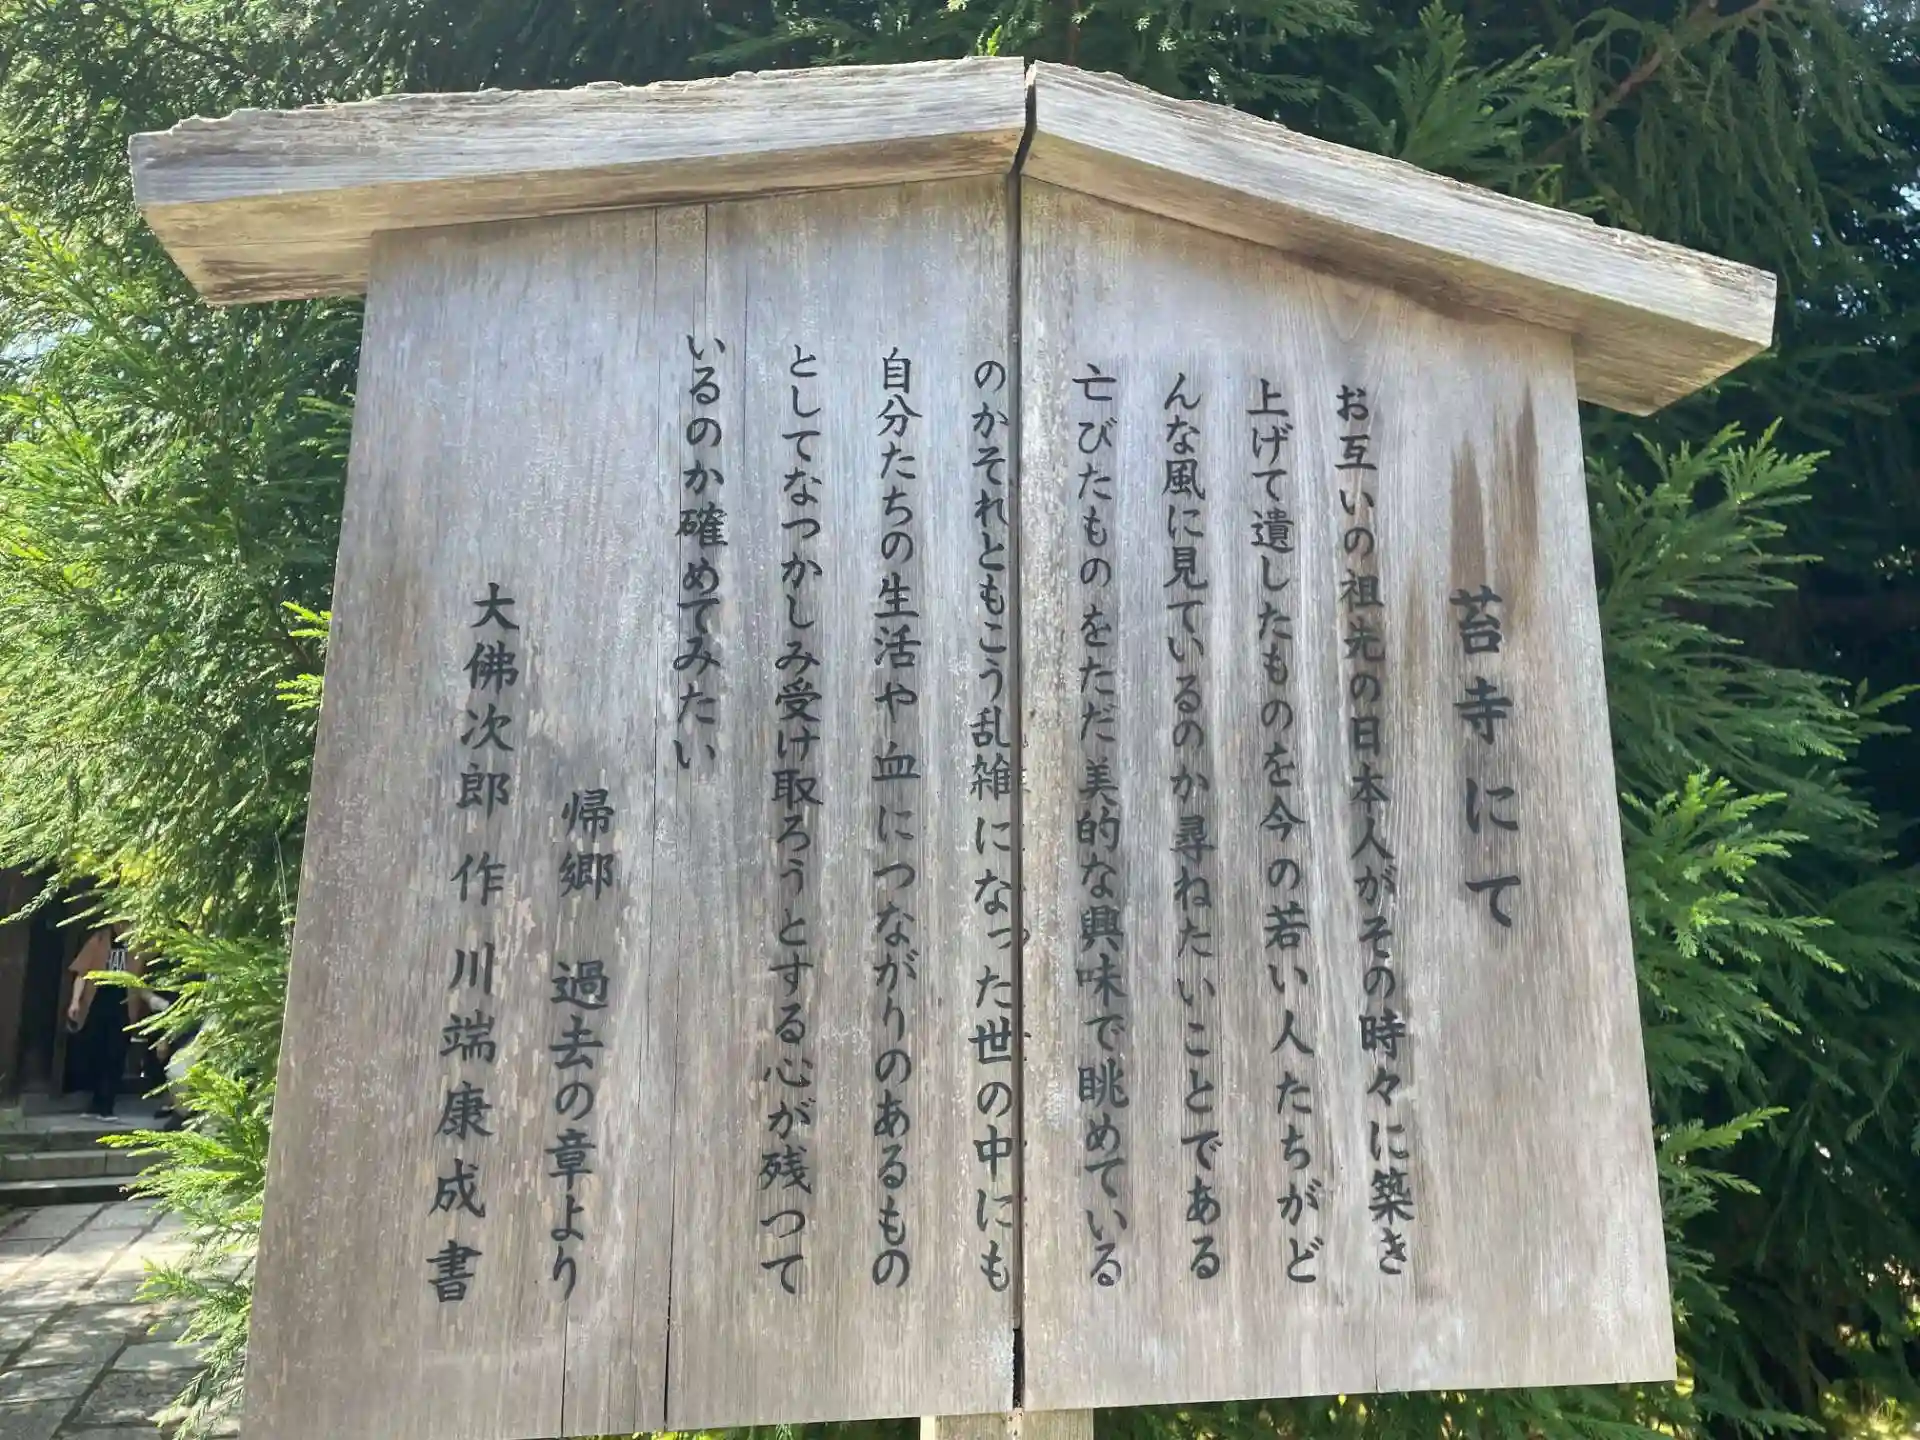 苔寺にて
お互いの祖先の日本人がその時々に築き
上げて遺したものを今の若い人たちがど
んな風に見ているのか尋ねたいことである
亡びたものをただ美的な興味で眺めている
のかそれともこう乱雑になった世の中にも
自分たちの生活や血につながりのあるもの
としてなつかしみ受け取ろうとする心が残つて
いるのか確めてみたい
帰郷 過去の章より
大佛次郎 作 川端康成 書